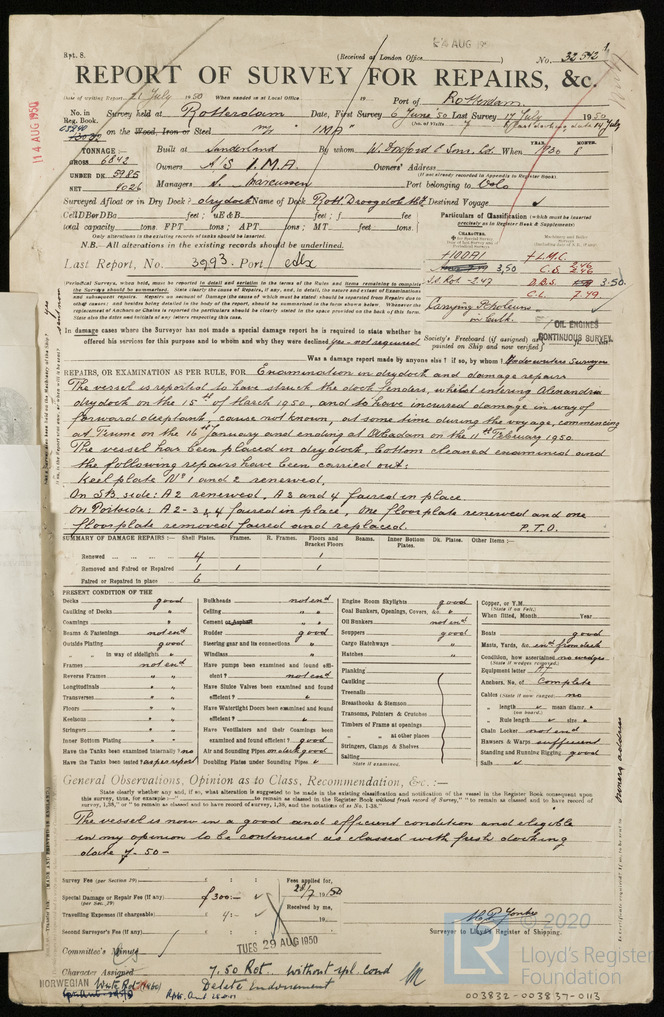 Rpt. 8.
(Received at London Office
AUG 19
No. 32542
REPORT OF SURVEY FOR REPAIRS, &c.
Date of writing Report 21 July 1950 When handed in at Local Office 19 Port of Rotterdam
No. in Reg. Book. Survey held at Rotterdam Date, First Survey 6 June 50 Last Survey 17 July 1950
on the Wood, Iron or Steel m/v "IMA"
14 AUG 1950
TONNAGE:—
GROSS 6842
UNDER DK 5985
NET 4026
Built at Sunderland By whom W. Doxford & Sons. Ld. When 1930 MONTH. 8
Owners A/S I.M.A. Owners' Address
(If not already recorded in Appendix to Register Book)
Managers S. Marcussen Port belonging to Oslo
Surveyed Afloat or in Dry Dock? drydock Name of Dock Rott. Droogdok Mij Destined Voyage
Cell DB or DBa feet; uE & B feet; f feet
total capacity tons. FPT tons; APT tons; MT feet tons.
Only alterations in the existing records of tanks should be inserted.
N.B.—All alterations in the existing records should be underlined.
Particulars of Classification (which must be inserted precisely as in Register Book & Supplements)
Last Report, No. 3993. Port Alx
+100A1
3,50
+L.M.C.
C.S. 2.46
D.B.S. 3.50.
C.L. 7.49
Carrying Petroleum in Bulk.
OIL ENGINES
CONTINUOUS SURVEY
In damage cases where the Surveyor has not made a special damage report he is required to state whether he
offered his services for this purpose and to whom and why they were declined yes - not required
Society's Freeboard (if assigned) as painted on Ship and now verified
Was a damage report made by anyone else? if so, by whom? Underwriters Surveyor
REPAIRS, OR EXAMINATION AS PER RULE, FOR Examination in drydock and damage repairs
The vessel is reported to have struck the dock fenders, whilst entering Alexandria
drydock on the 15th of March 1950, and to have incurred damage in way of
forward deeptank, cause not known, at some time during the voyage, commencing
at Fiume on the 16th January and ending at on the 11th February 1950.
The vessel has been placed in drydock, bottom cleaned examined and
the following repairs have been carried out:
Keel plate No 1 and 2 renewed.
On SB. side: A2 renewed, A3 and 4 faired in place.
On Portside: A 2-3 & 4 faired in place, One floorplate renewed and one
floorplate removed faired and replaced. P.T.O.
SUMMARY OF DAMAGE REPAIRS:— Shell Plates. Frames. R. Frames. Floors and Bracket Floors Beams. Inner Bottom Plates. Dk. Plates. Other Items:—
Renewed 4 1
Removed and Faired or Repaired 1 1 1
Faired or Repaired in place 6
PRESENT CONDITION OF THE
Decks good
Caulking of Decks "
Coamings "
Beams & Fastenings not exd
Outside Plating good
" in way of sidelights "
Frames not exd
Reverse Frames " "
Longitudinals " "
Transverses " "
Floors " "
Keelsons " "
Stringers " "
Inner Bottom Plating " "
Have the Tanks been examined internally? no
Have the Tanks been tested? as per report
Bulkheads not exd
Ceiling " "
Cement or Asphalt " "
Rudder good
Steering gear and its connections "
Windlass "
Have pumps been examined and found efficient? not exd
Have Sluice Valves been examined and found efficient? "
Have Watertight Doors been examined and found efficient? "
Have Ventilators and their Coamings been examined and found efficient? good
Air and Sounding Pipes on deck good
Doubling Plates under Sounding Pipes
Engine Room Skylights good
Coal Bunkers, Openings, Covers, &c.
Oil Bunkers not exd
Scuppers good
Cargo Hatchways "
Hatches "
Planking
Caulking
Treenails
Breasthooks & Stemson
Transoms, Pointers & Crutches
Timbers of Frame at openings
" " at other places
Stringers, Clamps & Shelves
Salting
State if examined.
Copper, or Y.M.
(State if on Felt.)
When fitted, Month Year
Boats good
Masts, Yards, &c. exd from deck
Condition, how ascertained no wedges.
(State if wedges removed.)
Equipment letter A+
Anchors, No. of Complete
Cables (State if now ranged) no
" length mean diamr.
(on board.)
" Rule length size
Chain Locker not exd
Hawsers & Warps sufficient
Standing and Running Rigging good
Sails
General Observations, Opinion as to Class, Recommendation, &c.:—
State clearly whether any, if so, what alteration is suggested to be made in the existing classification and notification of the vessel in the Register Book consequent upon
The vessel is now in a good and efficient condition and eligible
in my opinion to be continued as classed with fresh docking
date 7. 50 -
Survey Fee (per Section 29) £ : :
Special Damage or Repair Fee (if any) (per Sec. 29) £ 300:-
Travelling Expenses (if chargeable) £ 4:-
Second Surveyor's Fee (if any) £ : :
Fees applied for, 24/7 1950
Received by me, 19
Surveyor to Lloyd's Register of Shipping.
Committee's Minute
TUES 29 AUG 1950
Character Assigned 7.50 Rot. without spl. cond
Delete Endorsement
NORWEGIAN
© 2020
LR
Lloyd's Register
Foundation
003832-003837-0113
owners address